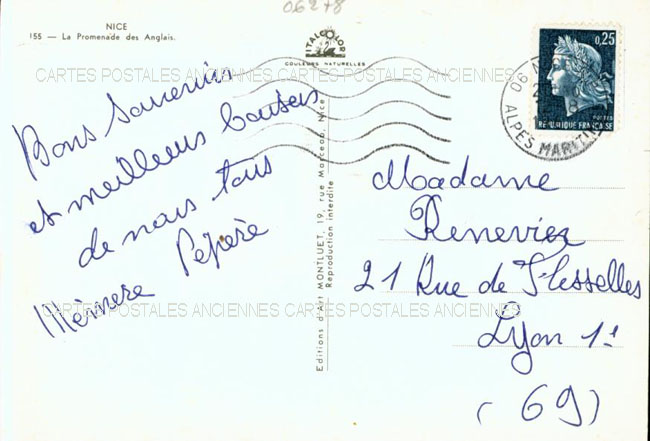 06278
NICE
155 — La Promenade des Anglais.
ITALCOLOR
COULEURS NATURELLES
0,25
POSTES
REPUBLIQUE FRANÇAISE
06 N
ALPES MARITIMES
CARTES POSTALES ANCIENNES CARTES POSTALES ANCIENNES
Bons souvenirs
et meilleurs baisers
de nous tous
Mémère Pépère
Editions d'Art MONTLUET, 19, rue Marceau, Nice
Reproduction interdite
Madame
Renevier
21 Rue de Flesselles
Lyon 1e
(69)
CARTES POSTALES ANCIENNES CARTES POSTALES ANCIENNES